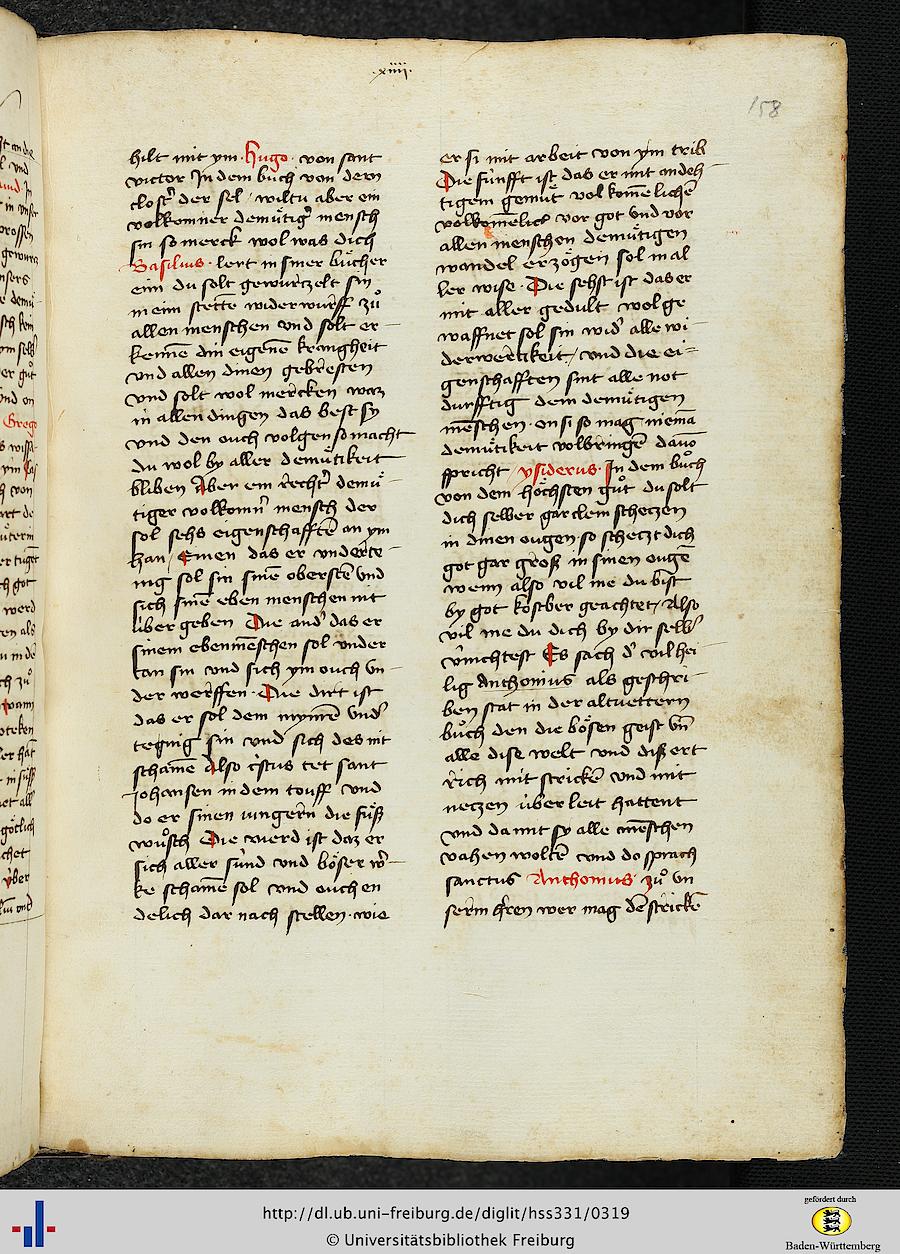 .xiiij.
158
hilt mit ym · Hugo · von sant
victor Jn dem buͦch von dem
clostˀ der sel · wiltu aber ein
volkomner demuͤtigˀ mensch
sin so merck wol was dich
Basilius · lert in siner buͤcher
eim du solt gewuͤrczelt sin
in eim stette widerwurff zuͦ
allen menschen vnd solt er-
kennē din eigenē krangheit
vnd allen dinen gebresten
vnd solt wol mercken waz
in allen dingen das best sy
vnd den ouch volgen so macht
du wol by aller demuͤtikeit
bliben Aber ein rechtˀ demuͤ-
tiger volkomnˀ mensch der
sol sehs eigenschafftē an ym
han / Einen das er vnderte-
nig sol sin sinē oberstē vnd
sich sinē eben menschen nit
uͤber geben Die andˀ das er
sinem ebenmēschen sol vnder
tan sin vnd sich ym ouch vn-
der werffen · Die dirt ist
das er sol dem mynrē vndˀ
tegnig sin vnd sich des nit
schamē Also cristus tet sant
Johansen in dem touff vnd
do er sinen iungern die fuͤß
wuͦsch Die vierd ist daz er
sich aller suͤnd vnd boͤser wˀ-
ke schamē sol vnd ouch en
delich dar nach stellen · wie
er si mit arbeit von ym trib
Die fuͤnfft ist das er mit andeh
tigem gemuͤt volkomēlichē
volkomēlich vor got vnd vor
allen menschen demuͤtigen
wandel erzoͤgen sol in al
ler wise · Die sehst ist das er
mit aller gedult wol ge
waffnet sol sin widˀ alle wi-
derwertikeit / vnd die ei-
genschafften sint alle not
durfftig dem demuͤtigen
mēschen · on si so mag niemā
demuͤtikeit volbringē dauō
spricht / ysiderus · Jn dem buͦch
von dem hoͤchsten guͦt du solt
dich selber gar clein scheczen
in dinen ougen so scheczt dich
got gar groß in sinen ougē
wenn also vil me du bist
by got kostber geachtet / Also
vil me du dich by dir selbˀ
vˀnichtest Es sach dˀ vil hei-
lig Anthonius als geschri-
ben stat in der altvettern
buͦch den die boͤsen geist vn̄
alle dise welt vnd diß ert
rich mit strickē vnd mit
neczen uͤber leit hattent
vnd da mit sy alle mēschen
vahen woltē vnd do sprach
sanctus Anthonius zuͦ vn
serm hˀren wer mag dē strickē
http://dl.ub.uni-freiburg.de/diglit/hss331/0319
© Universitätsbibliothek Freiburg
gefördert durch
Baden-Württemberg